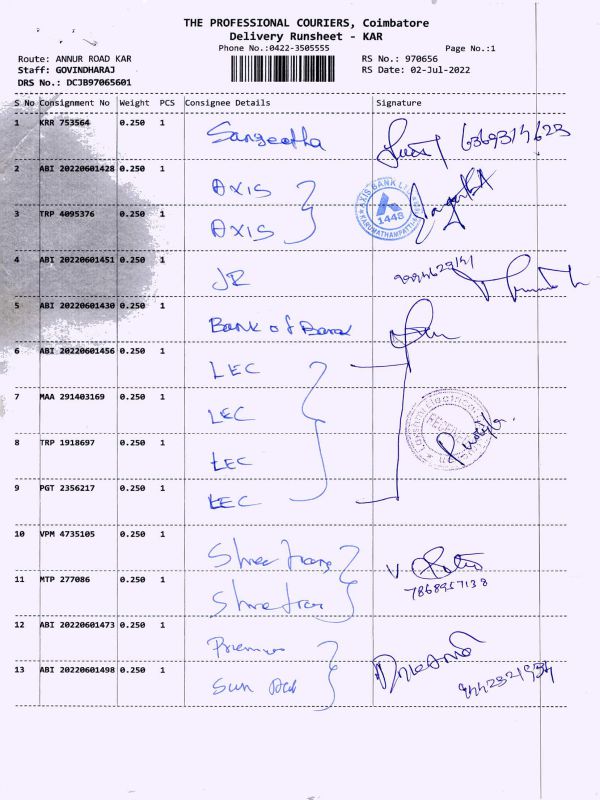 THE PROFESSIONAL COURIERS, Coimbatore
Delivery Runsheet - KAR
Phone No.:0422-3505555
Page No.:1
Route: ANNUR ROAD KAR
RS No.: 970656
Staff: GOVINDHARAJ
RS Date: 02-Jul-2022
DRS No.: DCJB97065601
S No Consignment No Weight PCS Consignee Details Signature
1 KRR 753564 0.250 1 Sangeetha 6369314623
2 ABI 20220601428 0.250 1 AXIS
AXIS BANK LTD
1448
3 TRP 4095376 0.250 1 AXIS
4 ABI 20220601451 0.250 1 JR
5 ABI 20220601430 0.250 1 Bank of Baroda
6 ABI 20220601456 0.250 1 LEC
7 MAA 291403169 0.250 1 LEC
8 TRP 1918697 0.250 1 LEC
9 PGT 2356217 0.250 1 LEC
10 VPM 4735105 0.250 1 Shree
7868957138
11 MTP 277086 0.250 1 Shree
12 ABI 20220601473 0.250 1
13 ABI 20220601498 0.250 1 Sun
9442321934